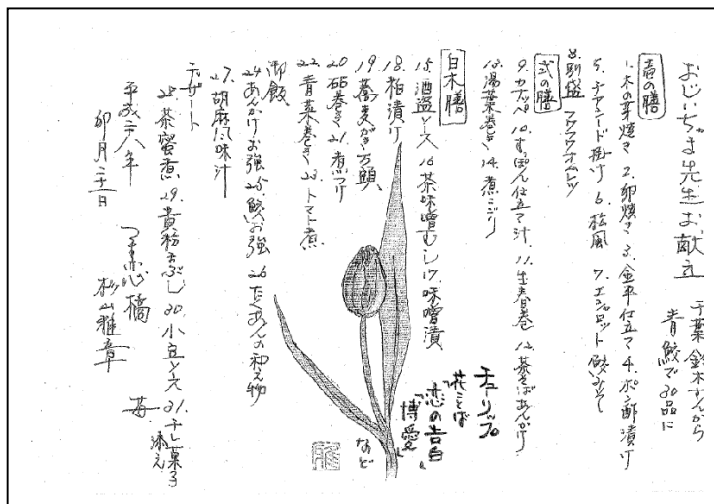 おじいちゃま先生お献立
千葉 鈴木さんから
青鮫で30品に
壱の膳
1.木の芽焼き 2.卵焼き 3.金平仕立て 4.ポン酢漬け
5.チアシード掛け 6.松風 7.エシャロット
8.別盛 フワフワオムレツ
弐の膳
9.カナッペ 10.すっぽん仕立て汁 11.生春巻 12.茶そばあんかけ
13.湯葉巻き 14.煮こごり
白木膳
15.酒盗ソース 16.茶味噌むし 17.味噌漬
18.粕漬け
19.蕎麦がき万頭
20.砧巻き 21.煮つけ
22.青菜巻き 23.トマト煮
御飯
24.あんかけお強 25.鮫お強 26.たくあんの和え物
27.胡麻風味汁
デザート
28.茶蜜煮 29.黄粉まぶし 30.小豆ソース 31.干し菓子
苺 添え
平成二八年
卯月二十一日
つま恋橋
杉山雅章
チューリップ
花ことば
「恋の告白」
「博愛」
など